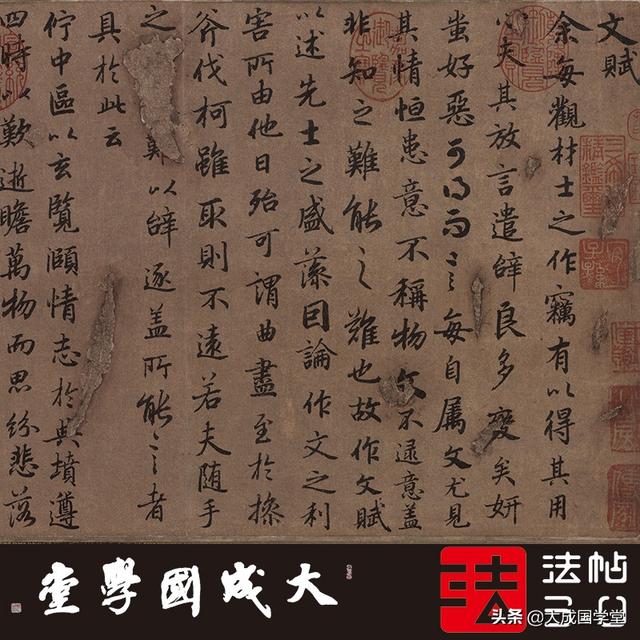 文賦
余每觀材士之作竊有以得其用
心夫其放言遣辭良多變矣妍
蚩好惡可得而言每自属文尤見
其情恒患意不稱物文不逮意盖
非知之難能之難也故作文賦
以述先士之盛藻因論作文之利
害所由他日殆可謂曲盡至於操
斧伐柯雖取則不遠若夫随手
之難以辭逐盖所能言者
具於此云
佇中區以玄覽頤情志於典墳遵
四時以歎逝瞻萬物而思紛悲落
大成國學堂
法帖
头条 @大成国学堂